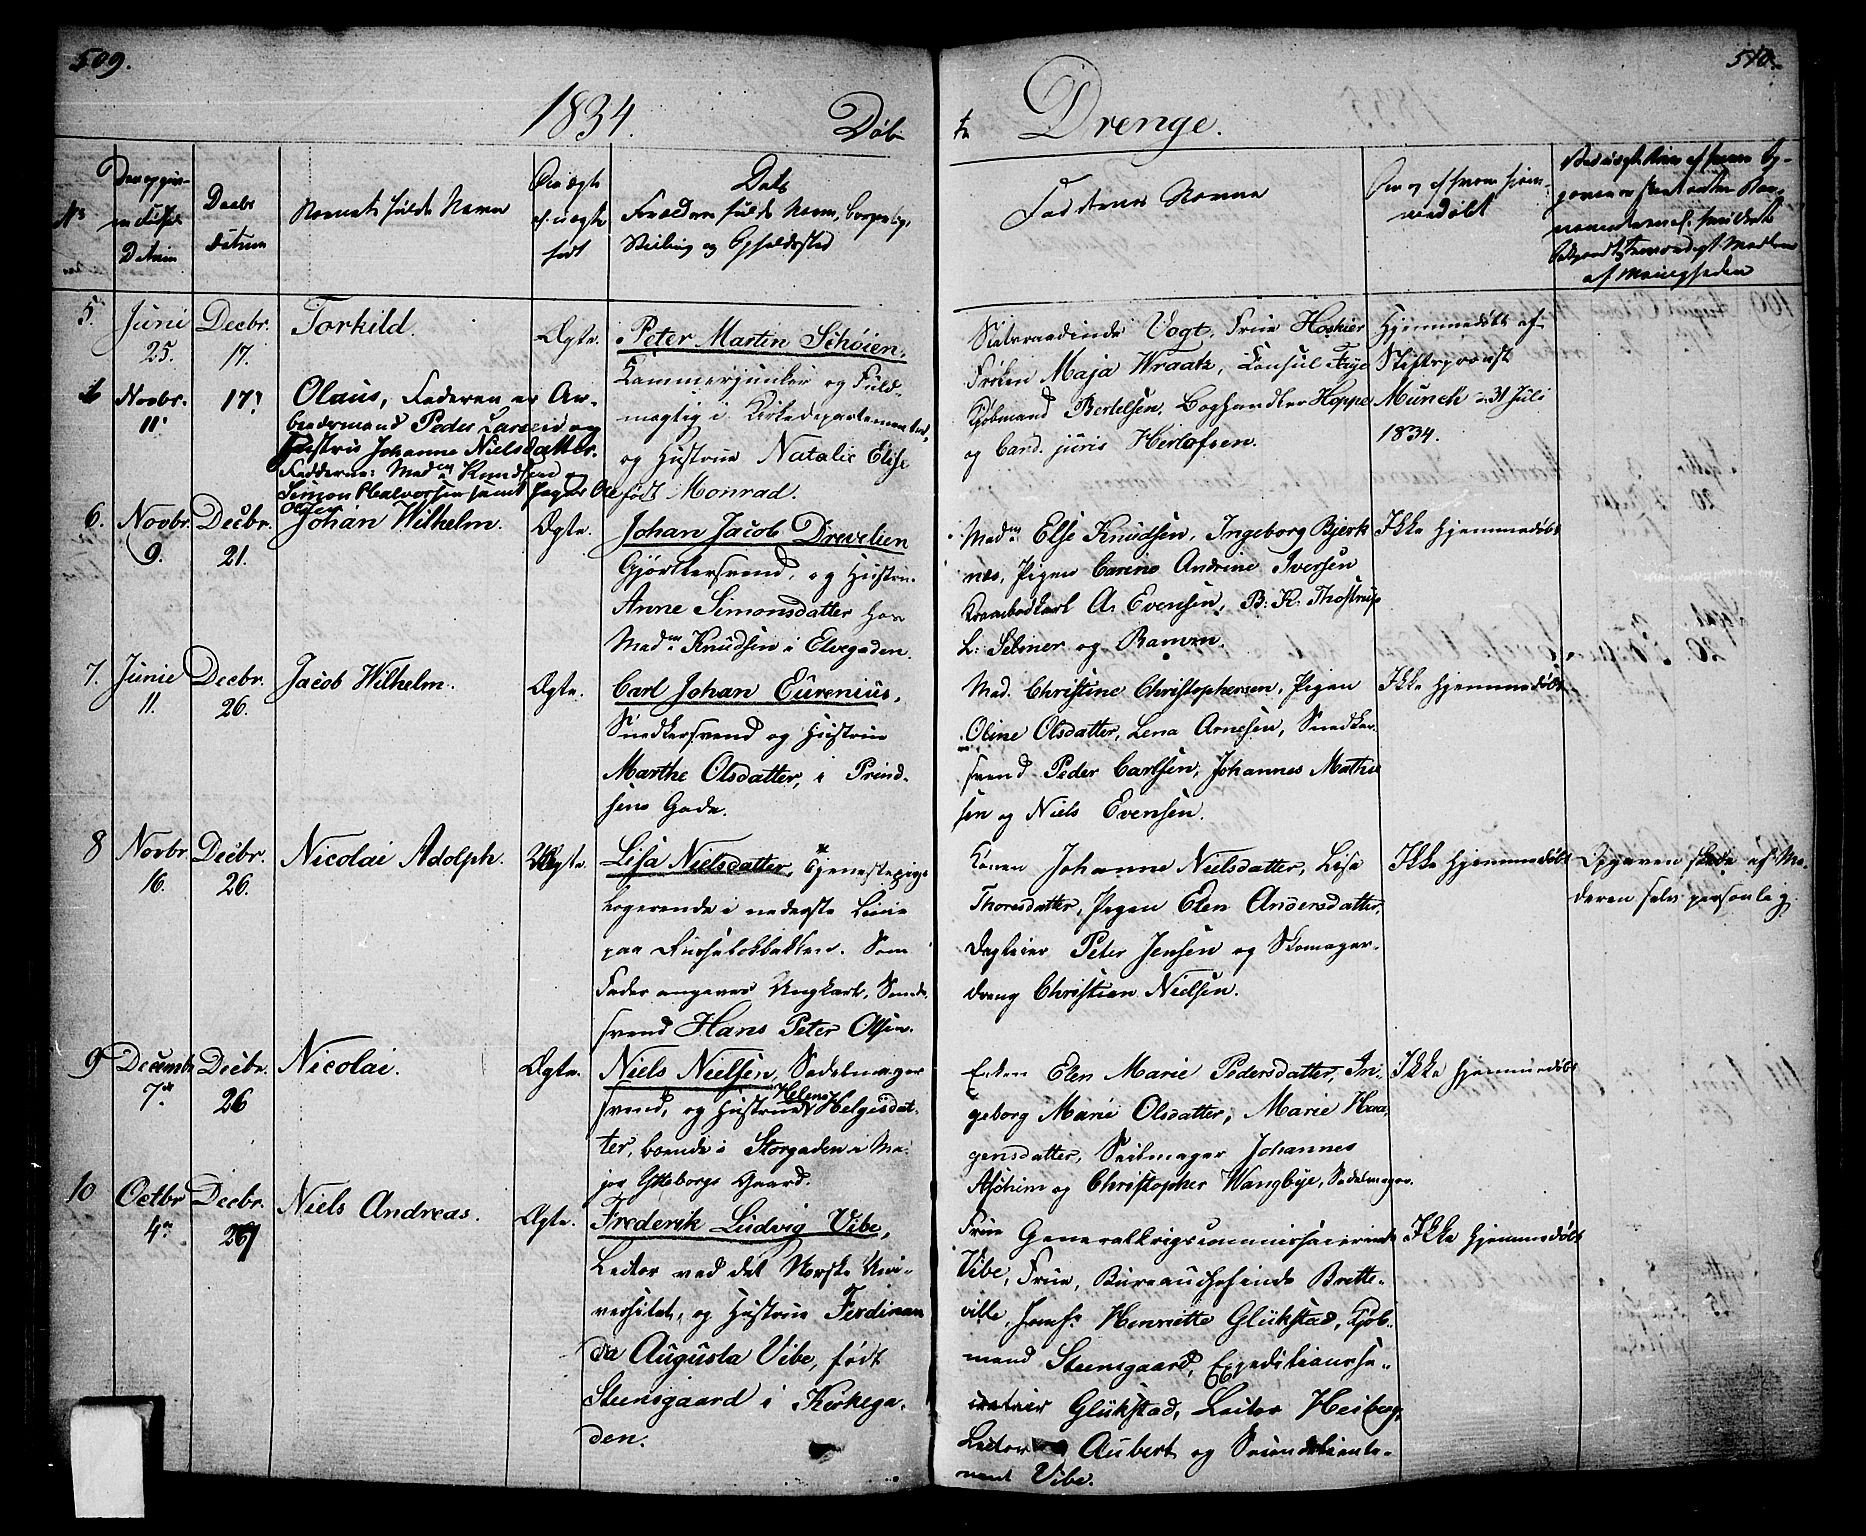 509.
510.
1834.
Døb-
te
Drenge.
No
Den opgiv-
ne Fødsels
Datum
Daabs
Datum
Barnets fulde Navn
Om ægte
el. uægte
født
Dets
Forældres fulde Navn, borgerlige
Stilling og Opholdssted
Faddernes Navne
Om og af hvem hjem-
medøbt
af Menigheden
5.
Juni
25.
Decbr.
17.
Torkild.
Ægte.
Peter Martin Schøien,
Kammerjunker og Fuld-
mægtig i Kirkedepartementet,
og Hustrue Natalie Elise
født Monrad.
Statsraadinde Vogt, Frue Hoskier
Frøken Maja Wraatz, Consul Frye
Kjøbmand Bertelsen, Boghandler Hoppe
og Cand. juris Herlofsen.
Hjemmedøbt af
Stiftsprovst
Munch d. 31 Juli
1834.
Novbr.
11.
17.
Olaus, Faderen er Ar-
beidsmand Peder Larsen og
Hustrue Johanne Nielsdatter.
Fadderne: Madm Knudsen og
Simon Halvorsen samt Jager Ole
Olsen
6.
Novbr.
9.
Decbr.
21.
Johan Wilhelm.
Ægte.
Johan Jacob Drevelien
Gjørtlersvend, og Hustru
Anne Simonsdatter hos
Madm Knudsen i Elvegaden.
Madm Else Knudsen, Ingeborg Bjerk
næs, Pigen Carine Andrine Iversen
A. Evensen, B. K. Thostrup
L. Selmer og Ramm.
Ikke hjemmedøbt
7.
Junie
11.
Decbr.
26.
Jacob Wilhelm.
Ægte.
Carl Johan Eurenius,
Snedkersvend og Hustrue
Marthe Olsdatter, i Prind-
sens Gade.
Mad. Christine Christophersen, Pigen
Oline Olsdatter, Lena Arnesen, Snedker-
svend Peder Carlsen, Johannes Mathie
sen og Niels Evensen.
Ikke hjemmedøbt
8
Novbr
16.
Decbr.
26.
Nicolai Adolph.
Uægte.
Lisa Nielsdatter, Tjenestepige
Logerende i nederste Linie
paa Fiirfelokbakken. Som
Fader angaves Ungkarl, Smede-
svend Hans Peter Olsen.
Konen Johanne Nielsdatter, Lisa
Thoresdatter, Pigen Elen Andersdatter,
Dagleier Peter Jensen og Skomager-
dreng Christian Nielsen.
Ikke hjemmedøbt
Opgaven skede af Mo-
deren selv personlig
9
Decembr
7de
Decbr.
26
Nicolai.
Ægte.
Niels Nielsen, Sadelmager
svend, og Hustrue Helene Helgesdat-
ter, boende i Storgaden i Ma-
jor Gøteborgs Gaard.
Enken Elen Marie Pedersdatter, In-
geborg Marie Olsdatter, Marie Haa-
gensdatter, Seilmager Johannes
Ascheim og Christopher Wangbye, Sadelmager.
Ikke hjemmedøbt
10
Octbr
4de
Decbr.
27
Niels Andreas.
Ægte.
Frederik Ludvig Vibe,
Lector ved det Norske Uni-
versitet, og Hustrue Ferdinan
da Augusta Vibe, født
Steensgaard i Kirkega-
den.
Frue Generalkrigscommissairinde
Vibe, Frue, Bureauchefinde Brette-
ville, Jomf. Henriette Glückstad, Kjøb-
mand Steensgaard, Expeditionsse-
cretair Glückstad, Lector Heiberg,
Lector Aubert og Secondlieute-
nant Vibe.
Ikke hjemmedøbt